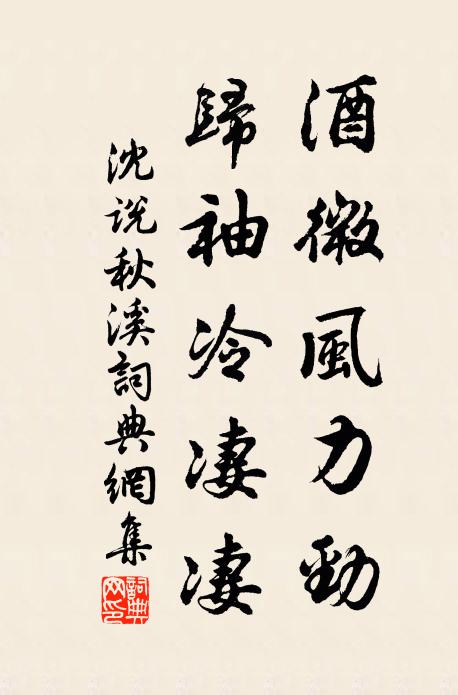 酒微風力勁
歸袖冷凄凄
沈説秋溪詞典網集
詞典网印